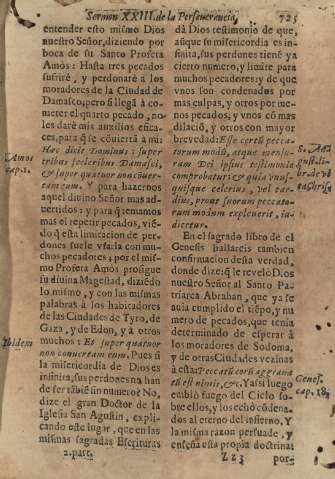 Sermon XXIII. de la Perseuerancia, 725
entender esto mismo Dios
nuestro Señor, diziendo por
boca de su Santo Profeta
Amòs: Hasta tres pecados
sufrirè, y perdonarè à los
moradores de la Ciudad de
Damasco, pero si llegà à co-
meter el quarto pecado, no
les darè mis auxilios efica-
ces, para q̃ se couiertã a mi:
Hæc dicit Dominus: super
tribus sceleribus Damasci,
& super quatuor non cõuer-
tam eum. Y para hazernos
aquel diuino Señor mas ad-
uertidos: y para q̃ temamos
mas el repetir pecados, viẽ-
do q̃ esta limitacion de per-
dones suele vsarla con mu-
chos pecadores; por el mis-
mo Profeta Amòs prosigue
su diuina Magestad, diziẽdo
lo mismo, y con las mismas
palabras à los habitadores
de las Ciudades de Tyro, de
Gaza, y de Edon, y à otros
muchos: Et super quatuor
non conuertam eum. Pues si
la misericordia de Dios es
infinita, sus perdones no han
de ser tãbiẽ sin numero? No,
dize el gran Doctor de la
Iglesia San Agustin, expli-
cando este lugar, que en las
mismas sagradas Escrituras
2. part.
Amos
cap. 1.
Ibidem
dà Dios testimonio de que,
aũque su misericordia es in-
finita, sus perdones tienẽ ya
cierto numero, y limite para
muchos pecadores: y de que
vnos son condenados por
mas culpas, y otros por me-
nos pecados; y vnos cõ mas
dilacion, y otros con mayor
breuedad: Esse certã pecca-
torum modũ, atque mensu-
ram Dei ipsius testimonio
comprobatur: & quia vnus-
quisque celerius, vel tar-
dius, prout suorum peccato-
rum modum expleuerit, iu-
dicetur.
En el sagrado libro de el
Genesis hallareis tambien
confirmacion desta verdad,
donde dize: q̃ le reuelò Dios
nuestro Señor al Santo Pa-
triarca Abrahan, que ya se
auia cumplido el tiẽpo, y nu-
mero de pecados, que tenia
determinado de esperar à
los moradores de Sodoma,
y de otras Ciudades vezinas
à esta: Peccatũ eorũ aggraua
tũ est nimis, &c. Y assi luego
embiò fuego del Cielo so-
bre ellos, y los echò cõdena-
dos al eterno del infierno. Y
la misma razon persuade, y
enseña esta propia doctrina
Zz3 por-
Genes.
cap. 18.